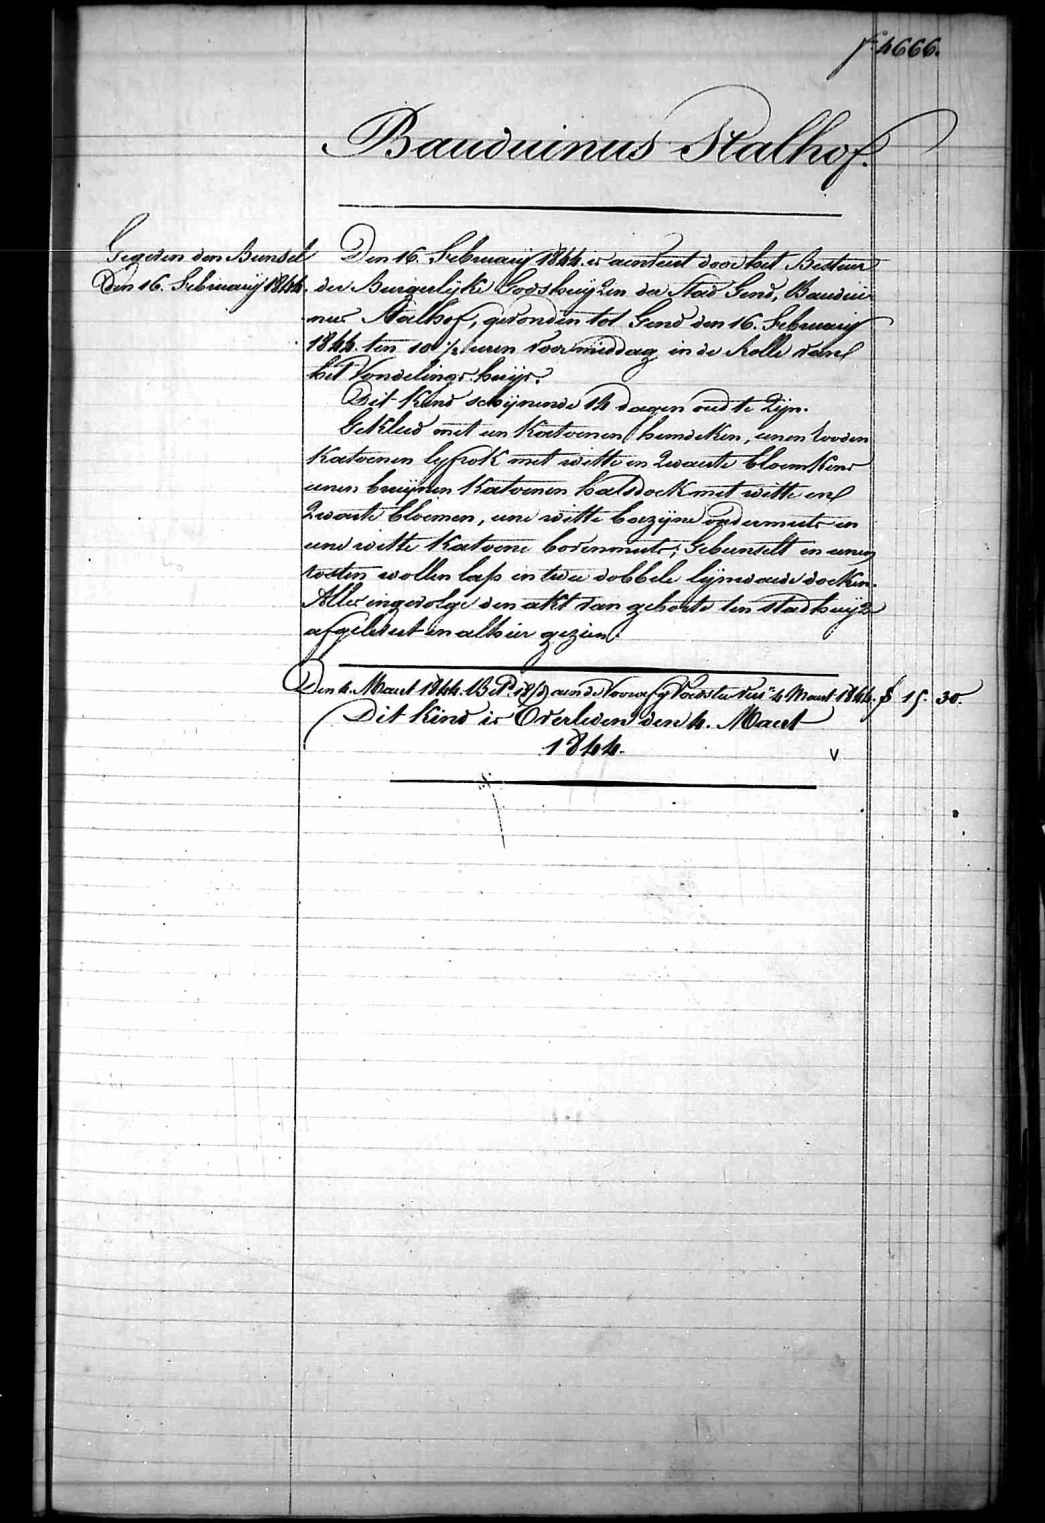 f° 4666.
Bauduinus Stalhof.
Gegeven den Bunsel
Den 16. February 1844.
Den 16. February 1844. is aenveert door het Bestuer
der Burgerlyke Godshuyzen der Stad Gend, Baudui-
nus Stalhof, gevonden tot Gend den 16. February
1844. ten 10 ½ uren voormiddag in de Rolle van
het Vondelings huys.
Dit Kind schynende 14 dagen oud te Zyn.
Gekleed met een Katoenen hemdeken, eenen rooden
Katoenen lyfrok met witte en Zwarte bloemkens
eenen bruynen Katoenen halsdoek met witte en
Zwarte bloemen, eene witte bazyne ondermuts en
eene witte Katoene bovenmuts; Gebunselt in eenen
wollen lap en twee dobbele lynwaede doeken.
Alles ingevolge den akt van geboorte ten stadhuyze
afgelevert en alhier gezien.
Den 4. Maert 1844. Bet. aen de Voedster 4 Maert 1844. f 15. 30.
Dit Kind is Overleden den 4. Maert
1844.